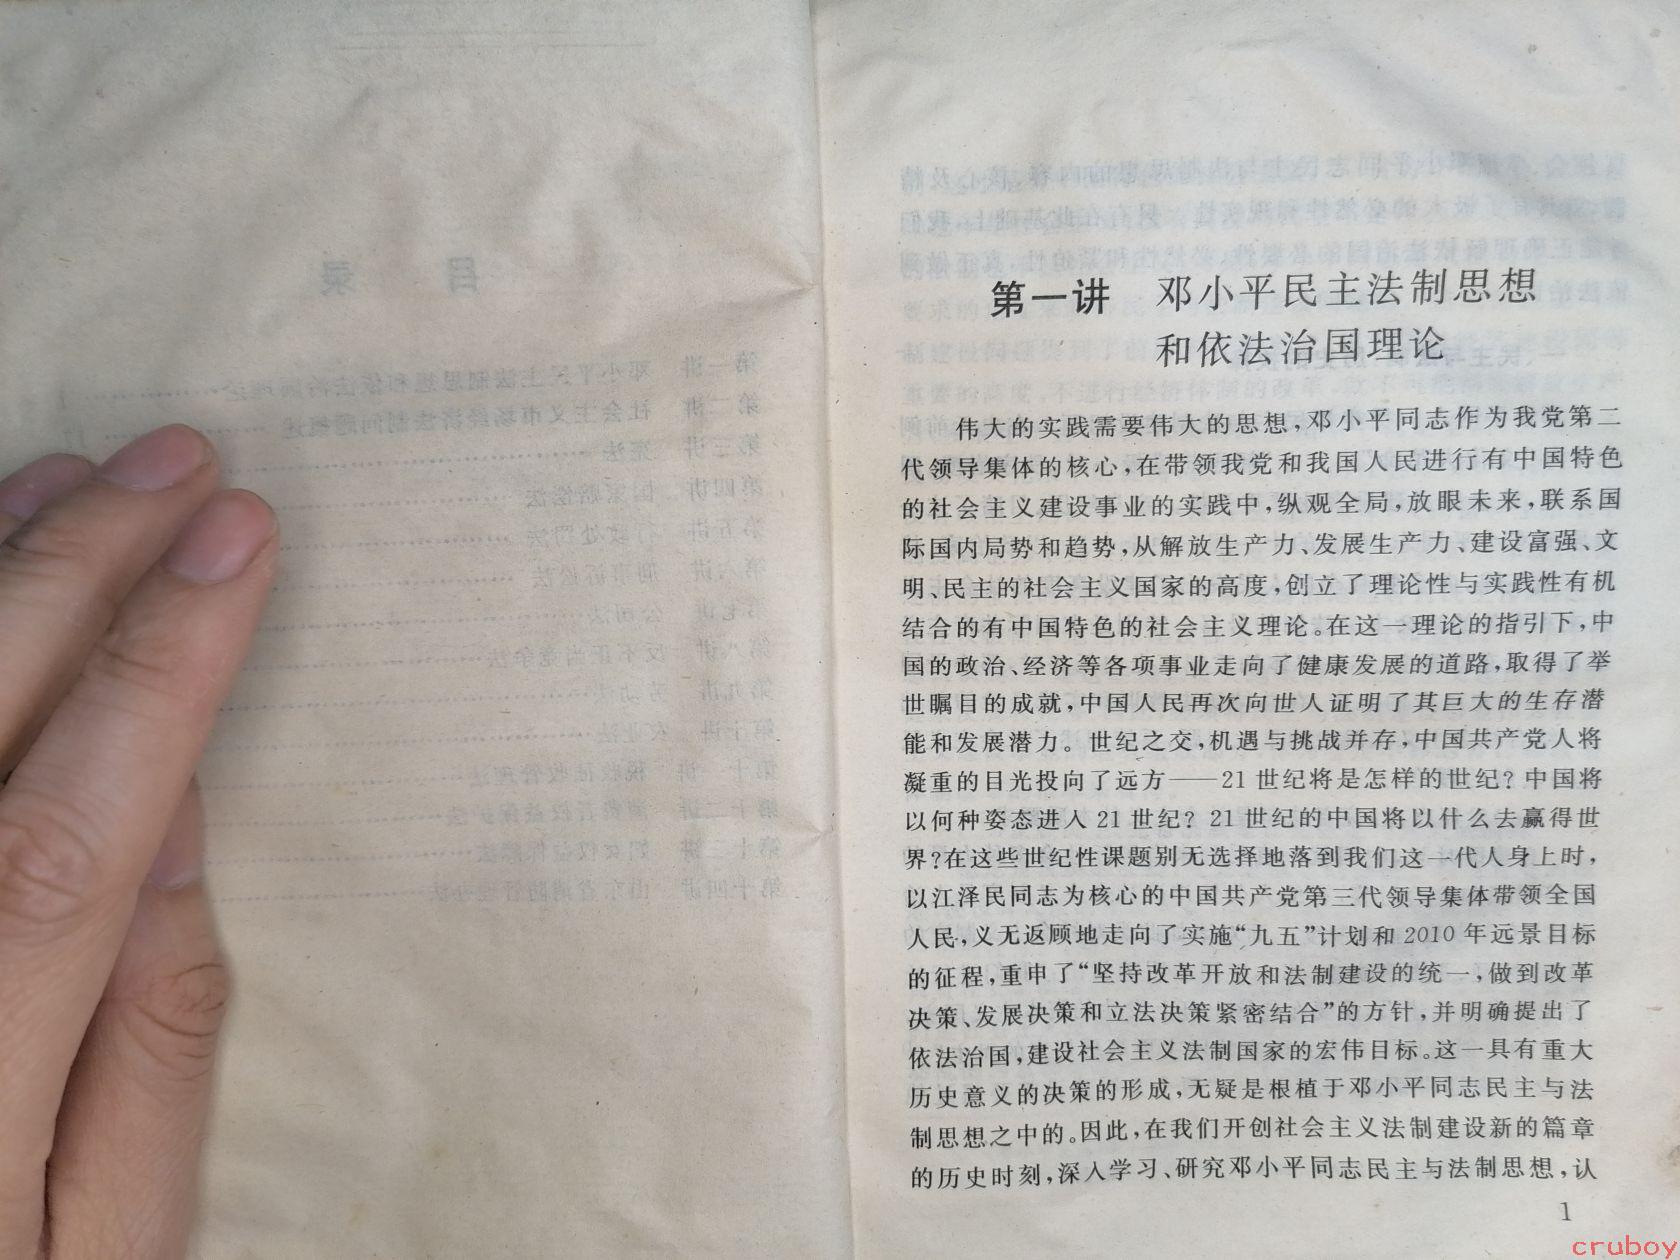 第一讲 邓小平民主法制思想
和依法治国理论
伟大的实践需要伟大的思想,邓小平同志作为我党第二
代领导集体的核心,在带领我党和我国人民进行有中国特色
的社会主义建设事业的实践中,纵观全局,放眼未来,联系国
际国内局势和趋势,从解放生产力、发展生产力、建设富强、文
明、民主的社会主义国家的高度,创立了理论性与实践性有机
结合的有中国特色的社会主义理论。在这一理论的指引下,中
国的政治、经济等各项事业走向了健康发展的道路,取得了举
世瞩目的成就,中国人民再次向世人证明了其巨大的生存潜
能和发展潜力。世纪之交,机遇与挑战并存,中国共产党人将
凝重的目光投向了远方——21世纪将是怎样的世纪?中国将
以何种姿态进入21世纪?21世纪的中国将以什么去赢得世
界?在这些世纪性课题别无选择地落到我们这一代人身上时,
以江泽民同志为核心的中国共产党第三代领导集体带领全国
人民,义无返顾地走向了实施“九五”计划和2010年远景目标
的征程,重申了“坚持改革开放和法制建设的统一,做到改革
决策、发展决策和立法决策紧密结合”的方针,并明确提出了
依法治国,建设社会主义法制国家的宏伟目标。这一具有重大
历史意义的决策的形成,无疑是根植于邓小平同志民主与法
制思想之中的。因此,在我们开创社会主义法制建设新的篇章
的历史时刻,深入学习、研究邓小平同志民主与法制思想,认
1
cruboy